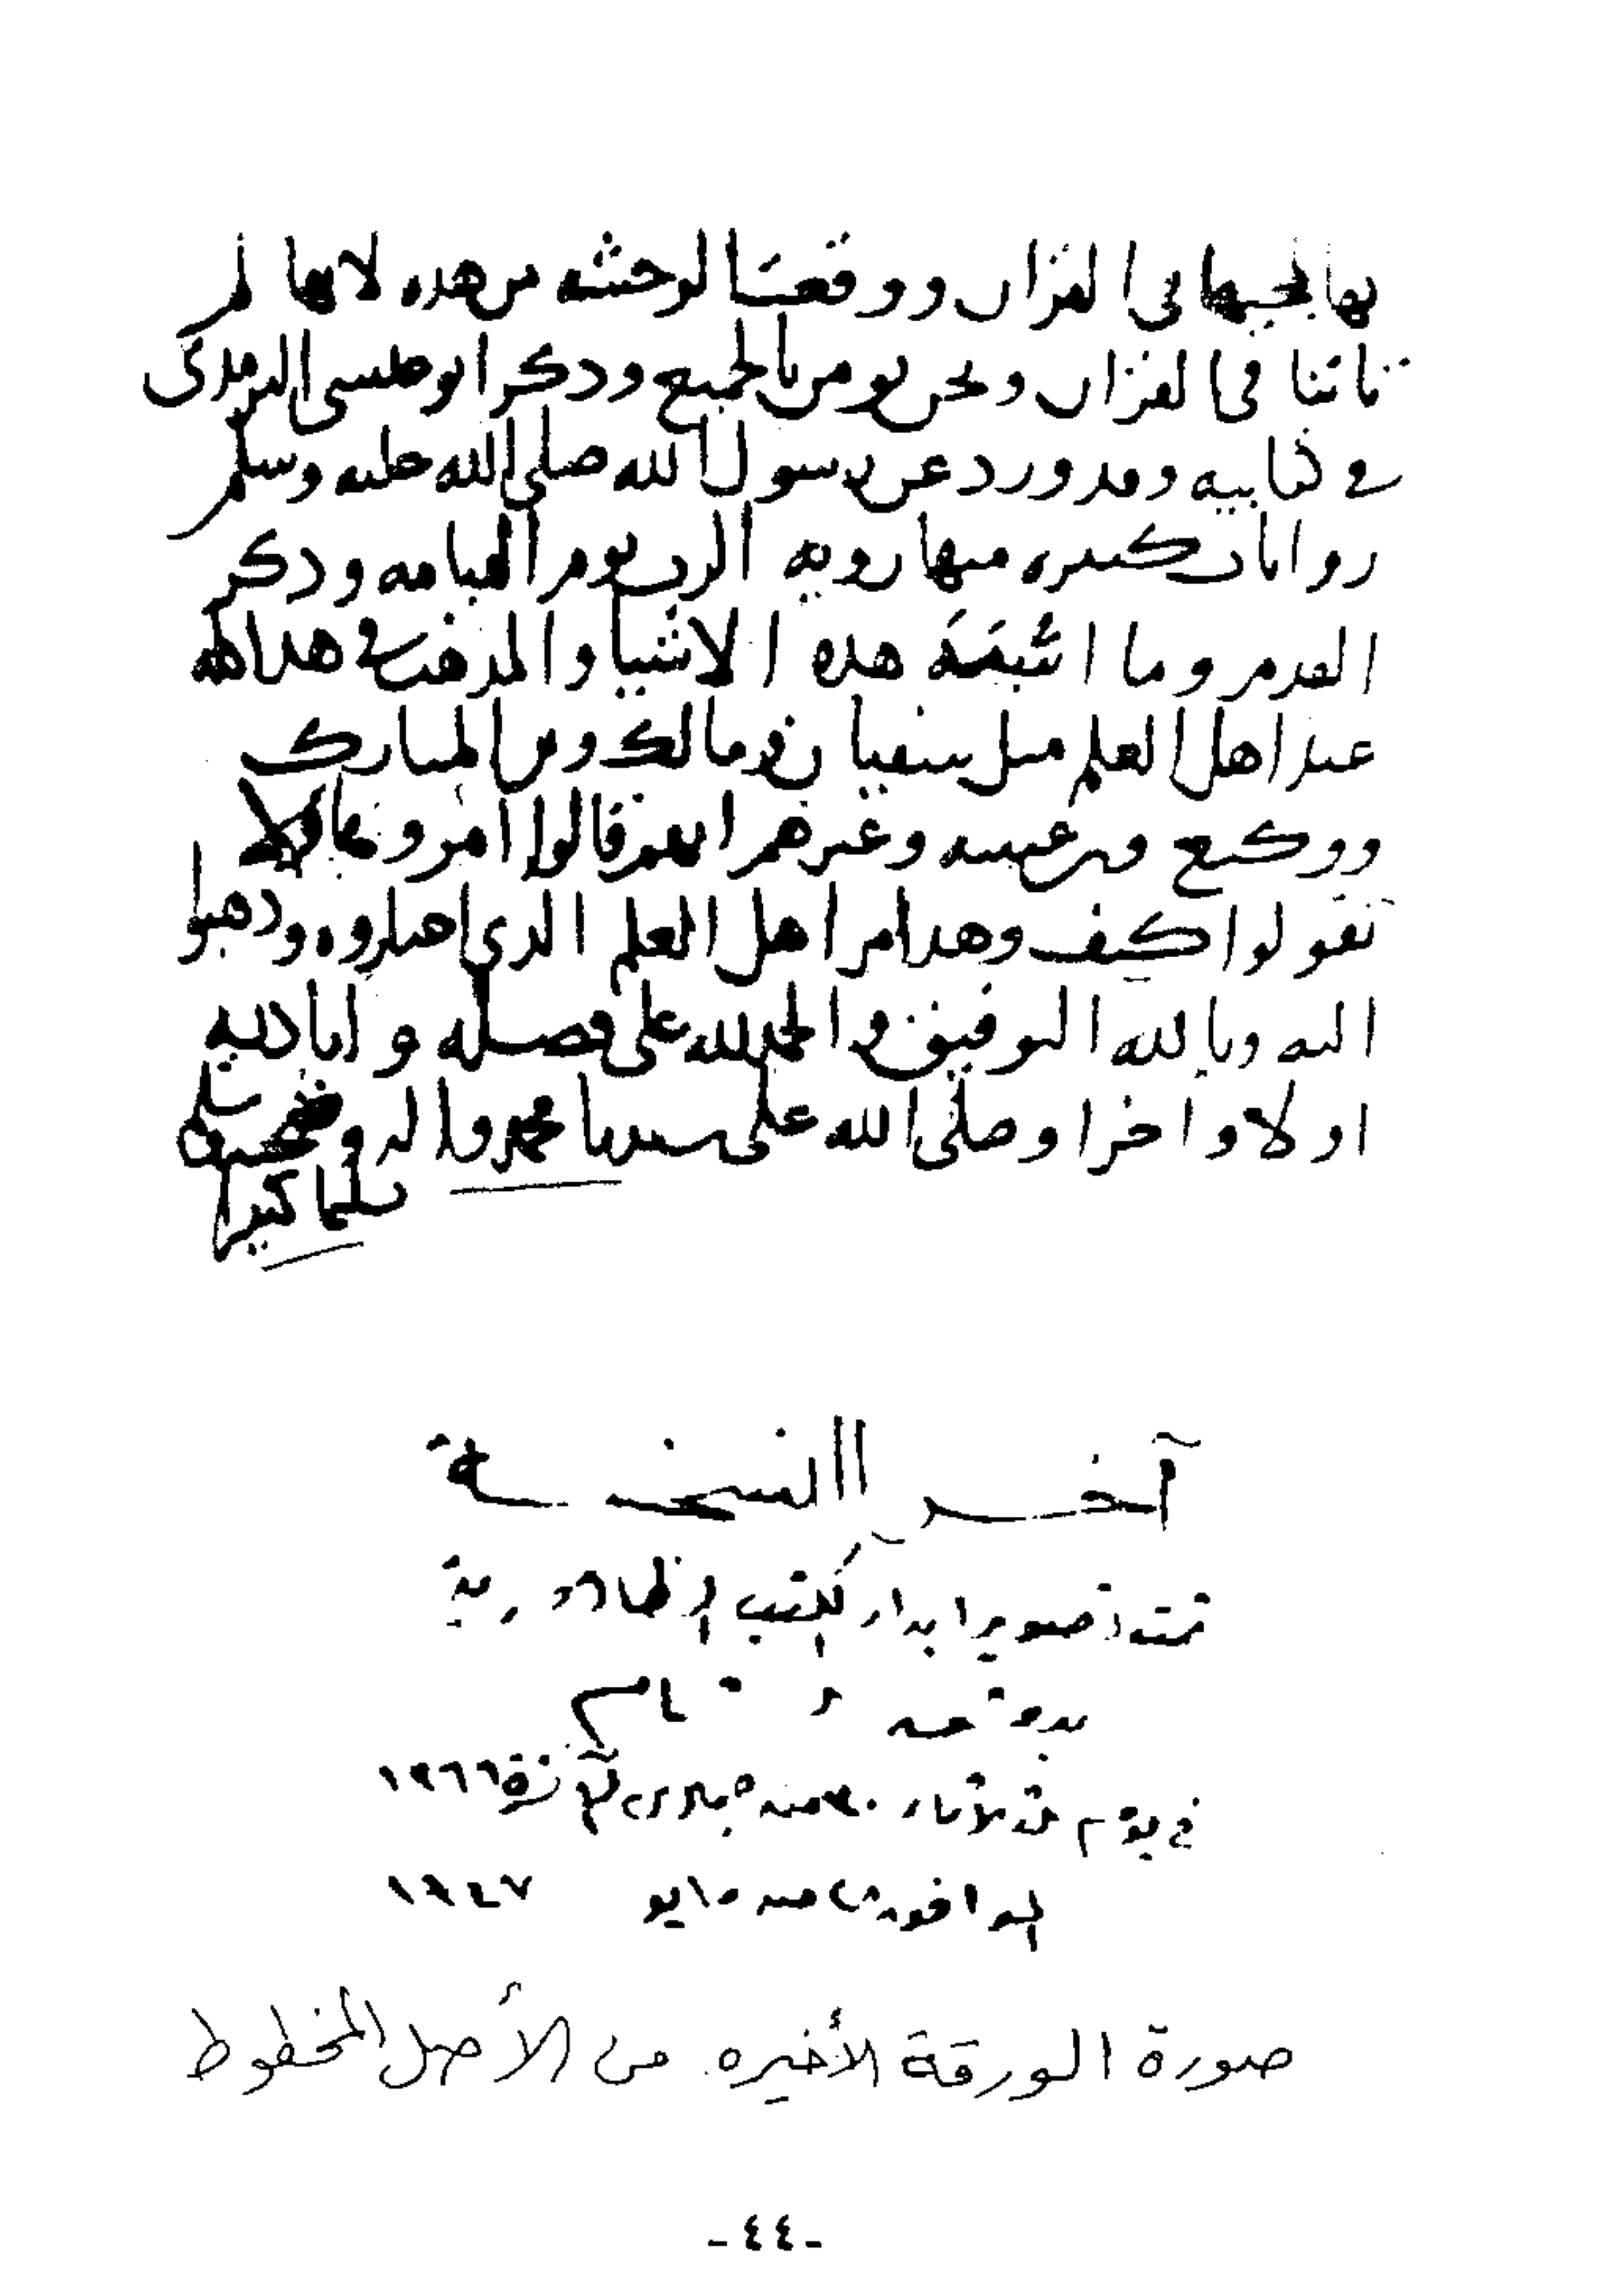 بها لمجيها في القران ووقعت الوحشه من هذه لانها لم
تاتنا في القران ونحن نومن بالجميع وذكر ابو عيسى الترمذي
في كتابيه وقد ورد عن رسول الله صلى الله عليه وسلم
روايات كثيره منها رويه الرب يوم القيامه وذكر
القدم وما اشبهة هذه الاشيا والمذهب في هذا كله
عند اهل العلم مثل سفيان ومالك وبن المبارك
ووكيع وبن عيينه وغيرهم انهم قالوا امروها ولا
تقولوا كيف وهذا امر اهل العلم الذي اختاروه وذهبوا
اليه وبالله التوفيق والحمد لله على فضله واياديه
اولا واخرا وصلى الله على سيدنا محمد واله وصحبه وسلم
تسليما كثيرا
آخر النسخة
تمت تصويرا بدار الكتب الظاهرية
بدمشق الشام
في يوم الثلاثاء جمادى الآخرة ١٣٦٦
الموافق مايو ١٩٤٧
صورة الورقة الأخيره من الأصل المخطوط
-٤٤-